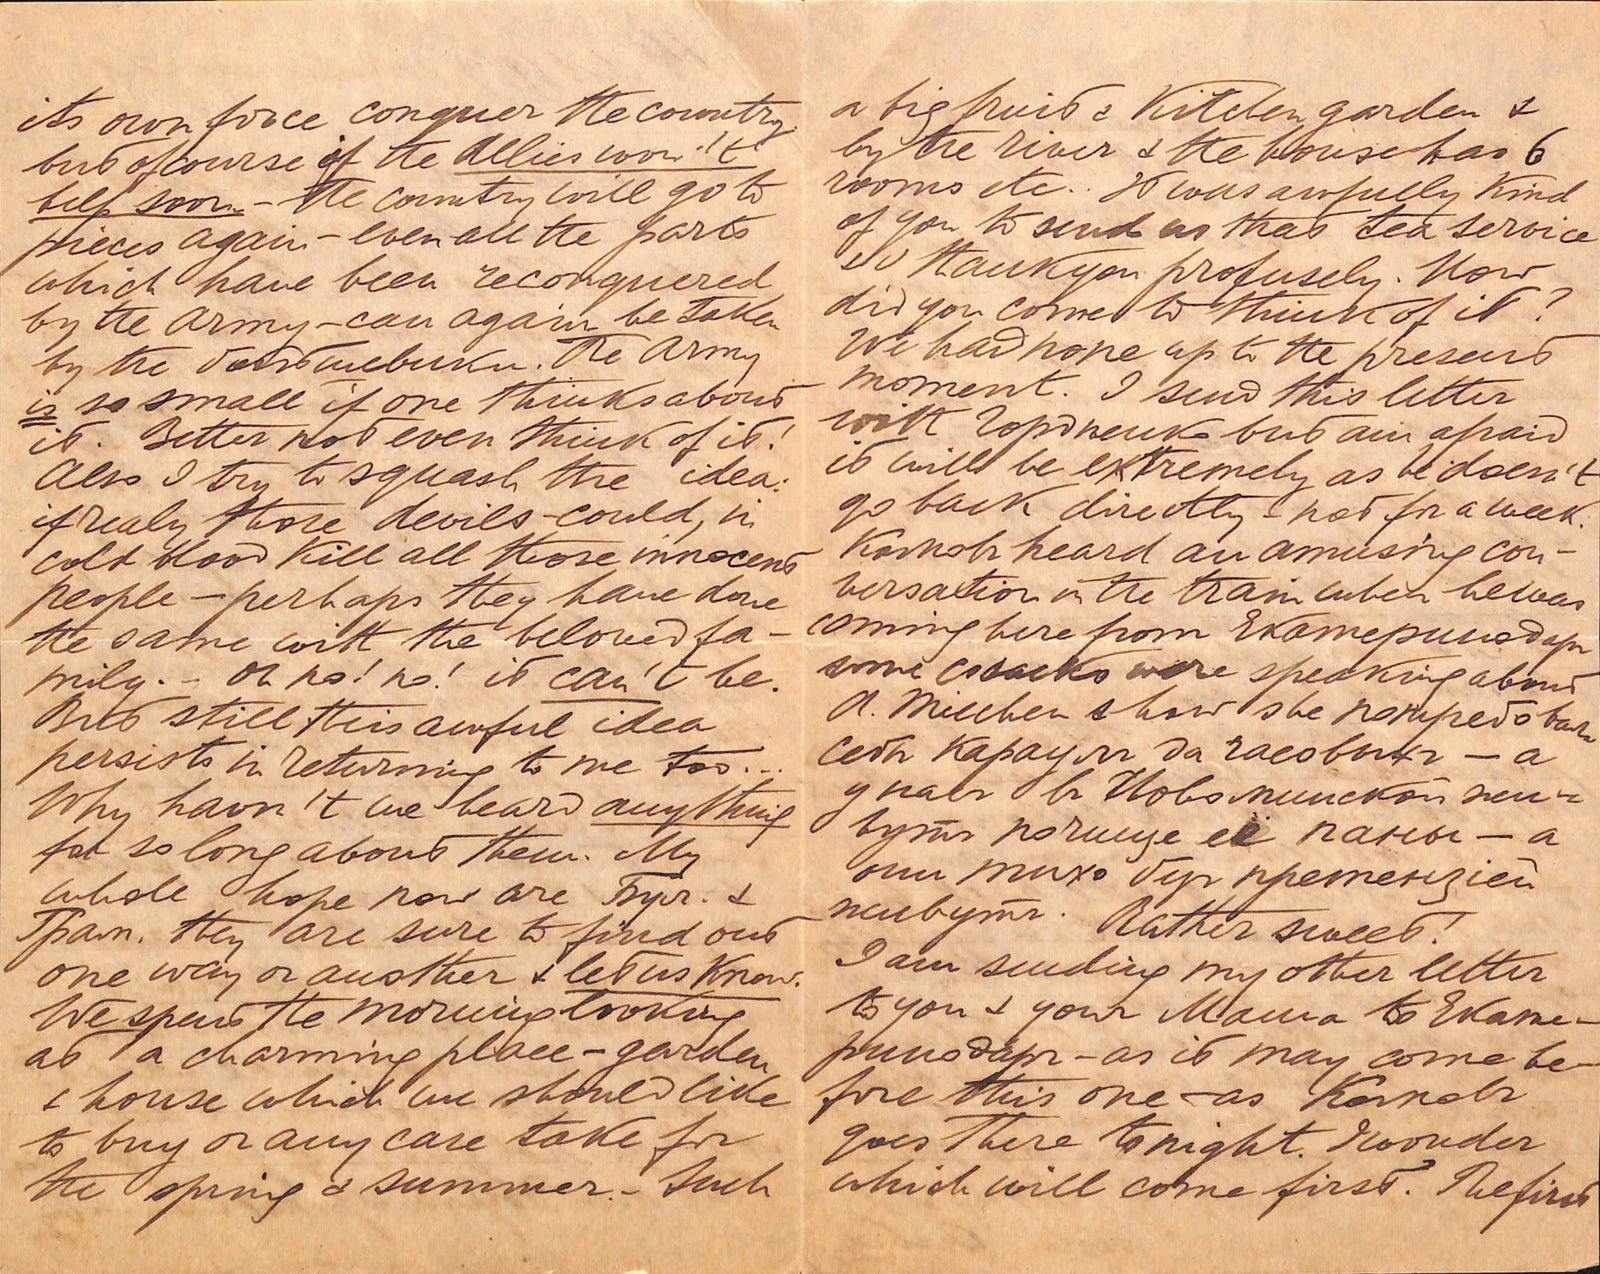 its own force conquer the country
but of course if the Allies won't
help soon – the country will go to
pieces again – even all the parts
which have been reconquered
by the army – can again be taken
by the большевики. The Army
is so small if one thinks about
it. Better not even think of it!
Also I try to squash the idea:
if realy those devils – could, in
cold blood kill all those innocent
people – perhaps they have done
the same with the beloved fa-
mily. – Oh no! no! it can't be.
But still this awful idea
persists in returning to me too...
Why havn't we heard anything
for so long about them. My
whole hope now are &
Грам. they are sure to find out
one way or another & let us know.
We spent the morning looking
at a charming place – garden
& house which we should like
to buy or any case take for
the spring & summer. – Such
a big fruit & Kitchen garden &
by the river & the house has 6
rooms etc.. It was awfully Kind
of you to send us that tea service
so thank you profusely. How
did you come to think of it?
We had none up to the present
moment. I send this letter
with Гордненко but am afraid
it will be extremely as he doesn't
go back directly – not for a week.
heard an amusing con-
versation in the train when he was
coming here from Екатеринодар
some cossacks were speaking about
A. Miechen & how she потребовала
себѣ караулъ да часовыхъ – а
у насъ въ Новоминской жи-
вутъ почище её панны – а
они тихо безъ претензій
живутъ. Rather sweet!
I am sending my other letter
to you & your Mama to Екате-
ринодаръ – as it may come be-
fore this one – as
goes There tonight. I wonder
which will come first. The first